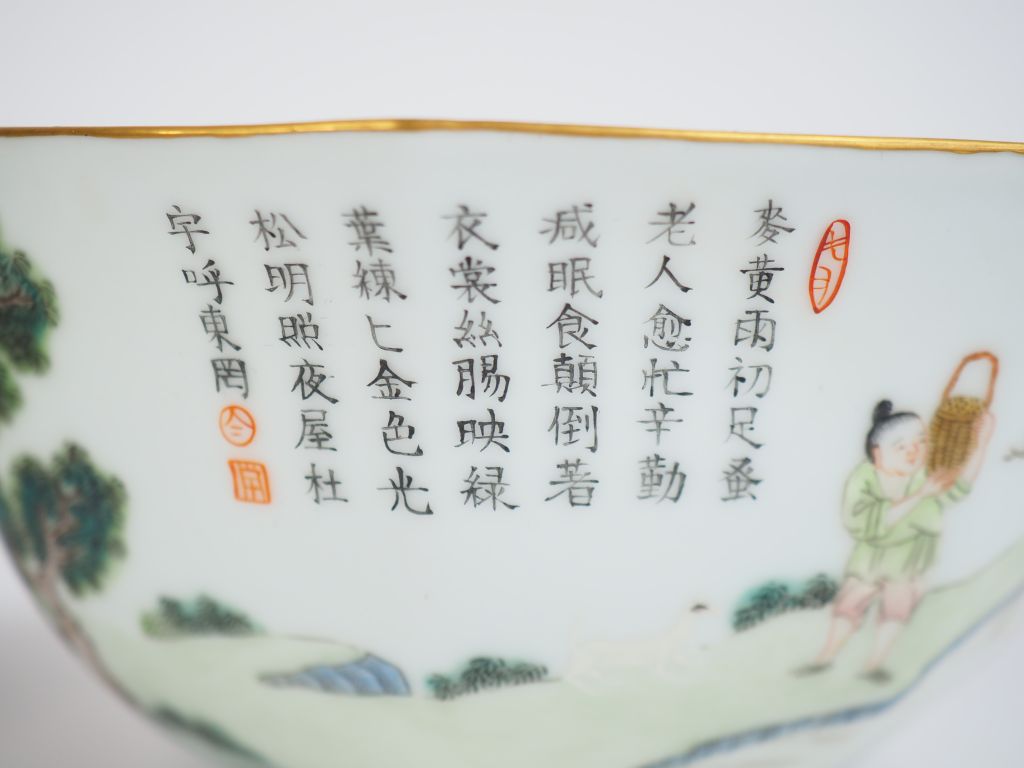 麥黄雨初足蚕
老人愈忙辛勤
减眠食顛倒著
衣裳絲腸映緑
葉練匕金色光
松明照夜屋杜
宇呼東罔